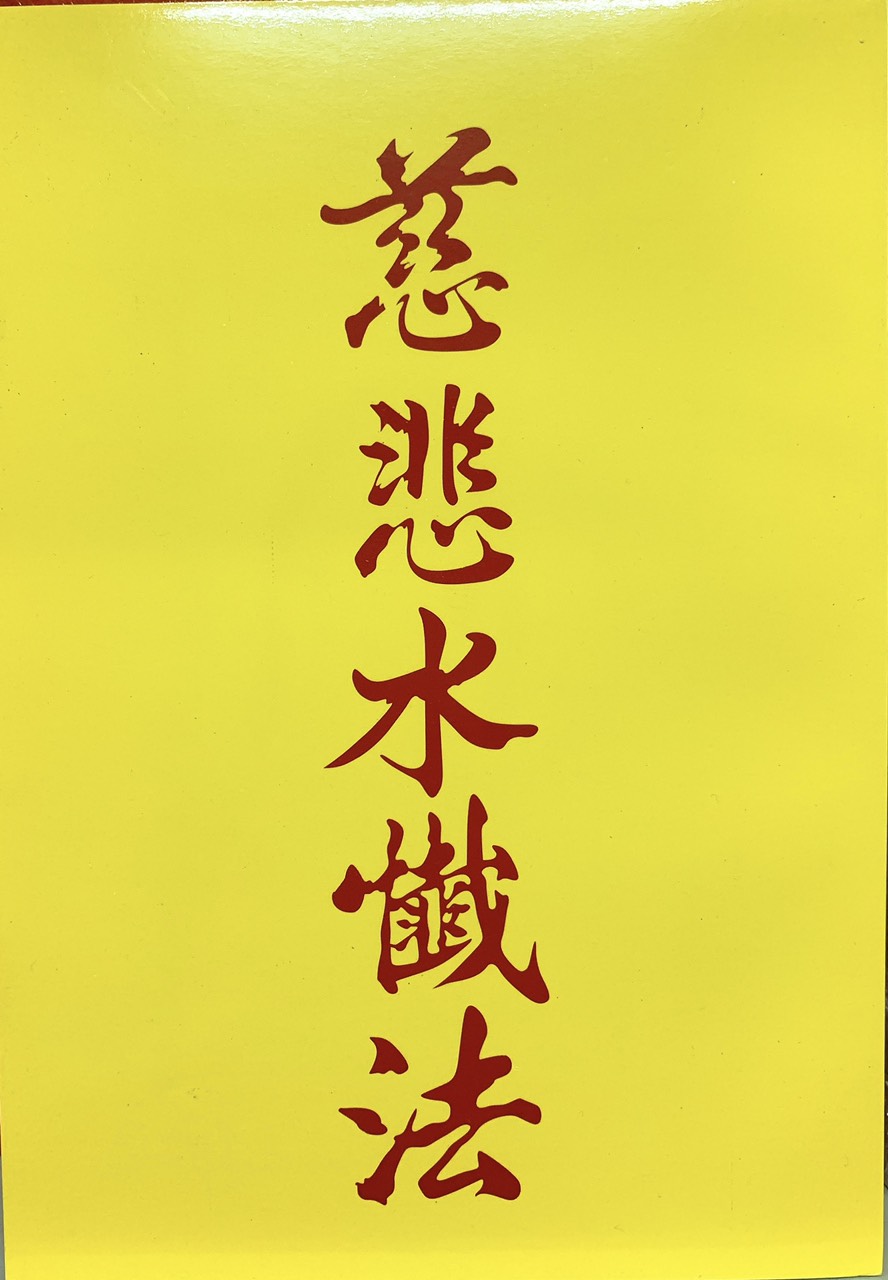 慈悲水懺法